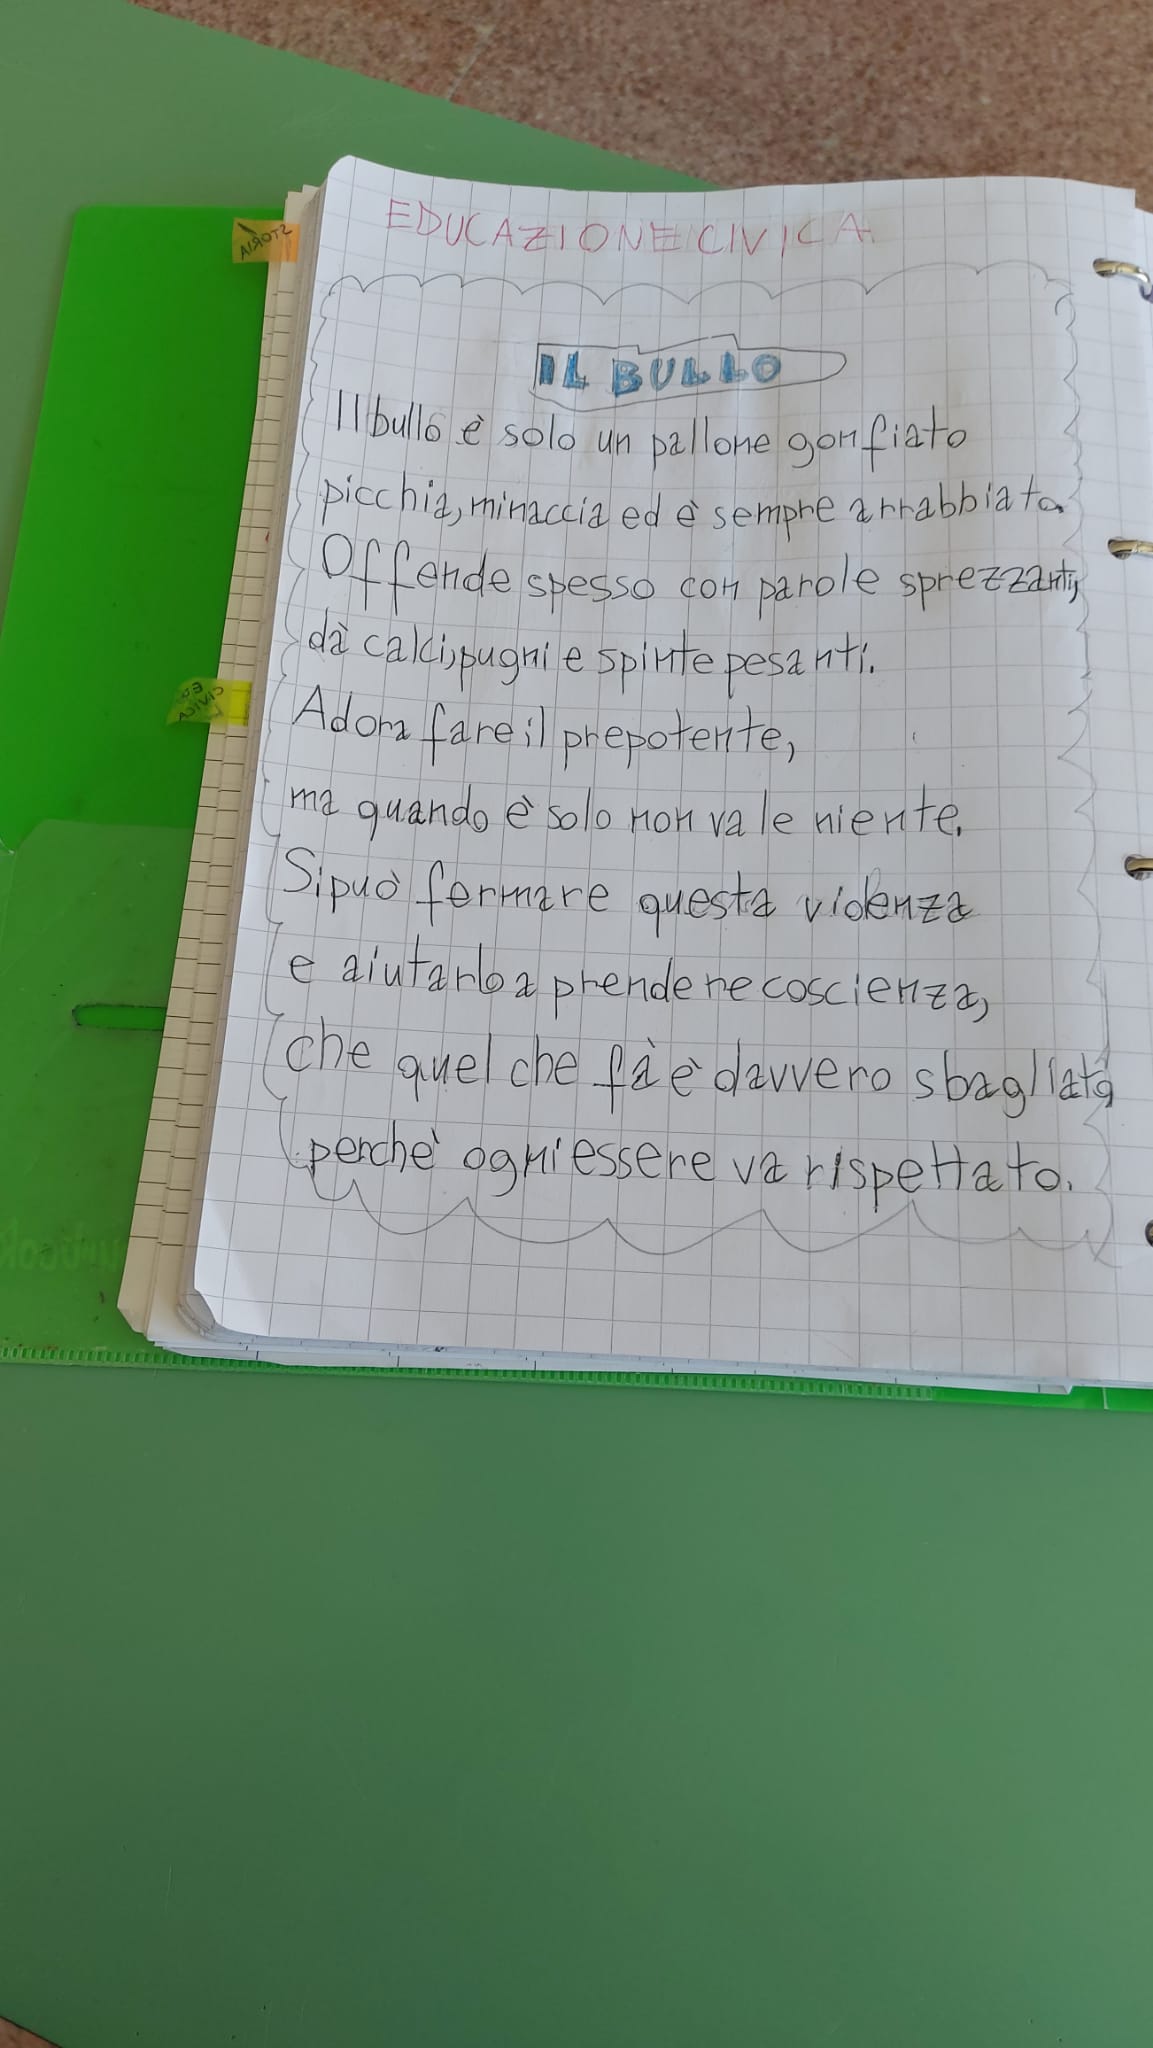 STORIA
EDUCAZIONE CIVICA
IL BULLO
Il bullo è solo un pallone gonfiato
picchia, minaccia ed è sempre arrabbiato.
Offende spesso con parole sprezzanti,
dà calci, pugni e spinte pesanti.
ED. CIVICA
Adora fare il prepotente,
ma quando è solo non vale niente.
Si può fermare questa violenza
e aiutarlo a prendere coscienza,
che quel che fà è davvero sbagliato
perchè ogni essere va rispettato.